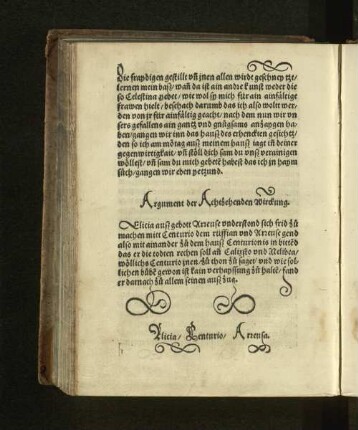 Die fraydigen gestillt vñ jnen allen wirdt geschney
lernen mein basz/ wañ da ist ain andre kunst weder die
so Celestina habet/ wie wol sy mich für ain ainfältige
frawen hielt/ beschach darumb das ich also wolt wer
den von jr für ainfältig geacht/ nach dem nun wir vn
sers gefallens ain gantz vnd gnůgsams anhangen ha
ben/gangen wir inn das hausz des
den so ich am mõtag ausz meinem hausz iagt iñ deiner
gegenwirtigkait/ vñ stöll dich sam du vnsz verainigen
wöllest/ vñ sam du mich gebett habest das ich in haym
sůch/gangen wir yetzund.
Argument der Achtzehenden Wirckung.
Elicia ausz gebott Areuse vnderstond sich frid zů
machen mitt Centurio dem ruffian vnd Areuse gend
also mit ainander zů dem hausz Centurionis in bittẽd
das er die todten rechen soll añ Calixsto vnd Melibea/
wöllichs Centurio jnen zů thon zů sagt/ vnd wie sol
lichen bůbẽ gewon ist kain verhayssung zů haltẽ/ fand
er darnach zů allem seinen ausz zug.
Elicia/ Centurio/ Areusa.